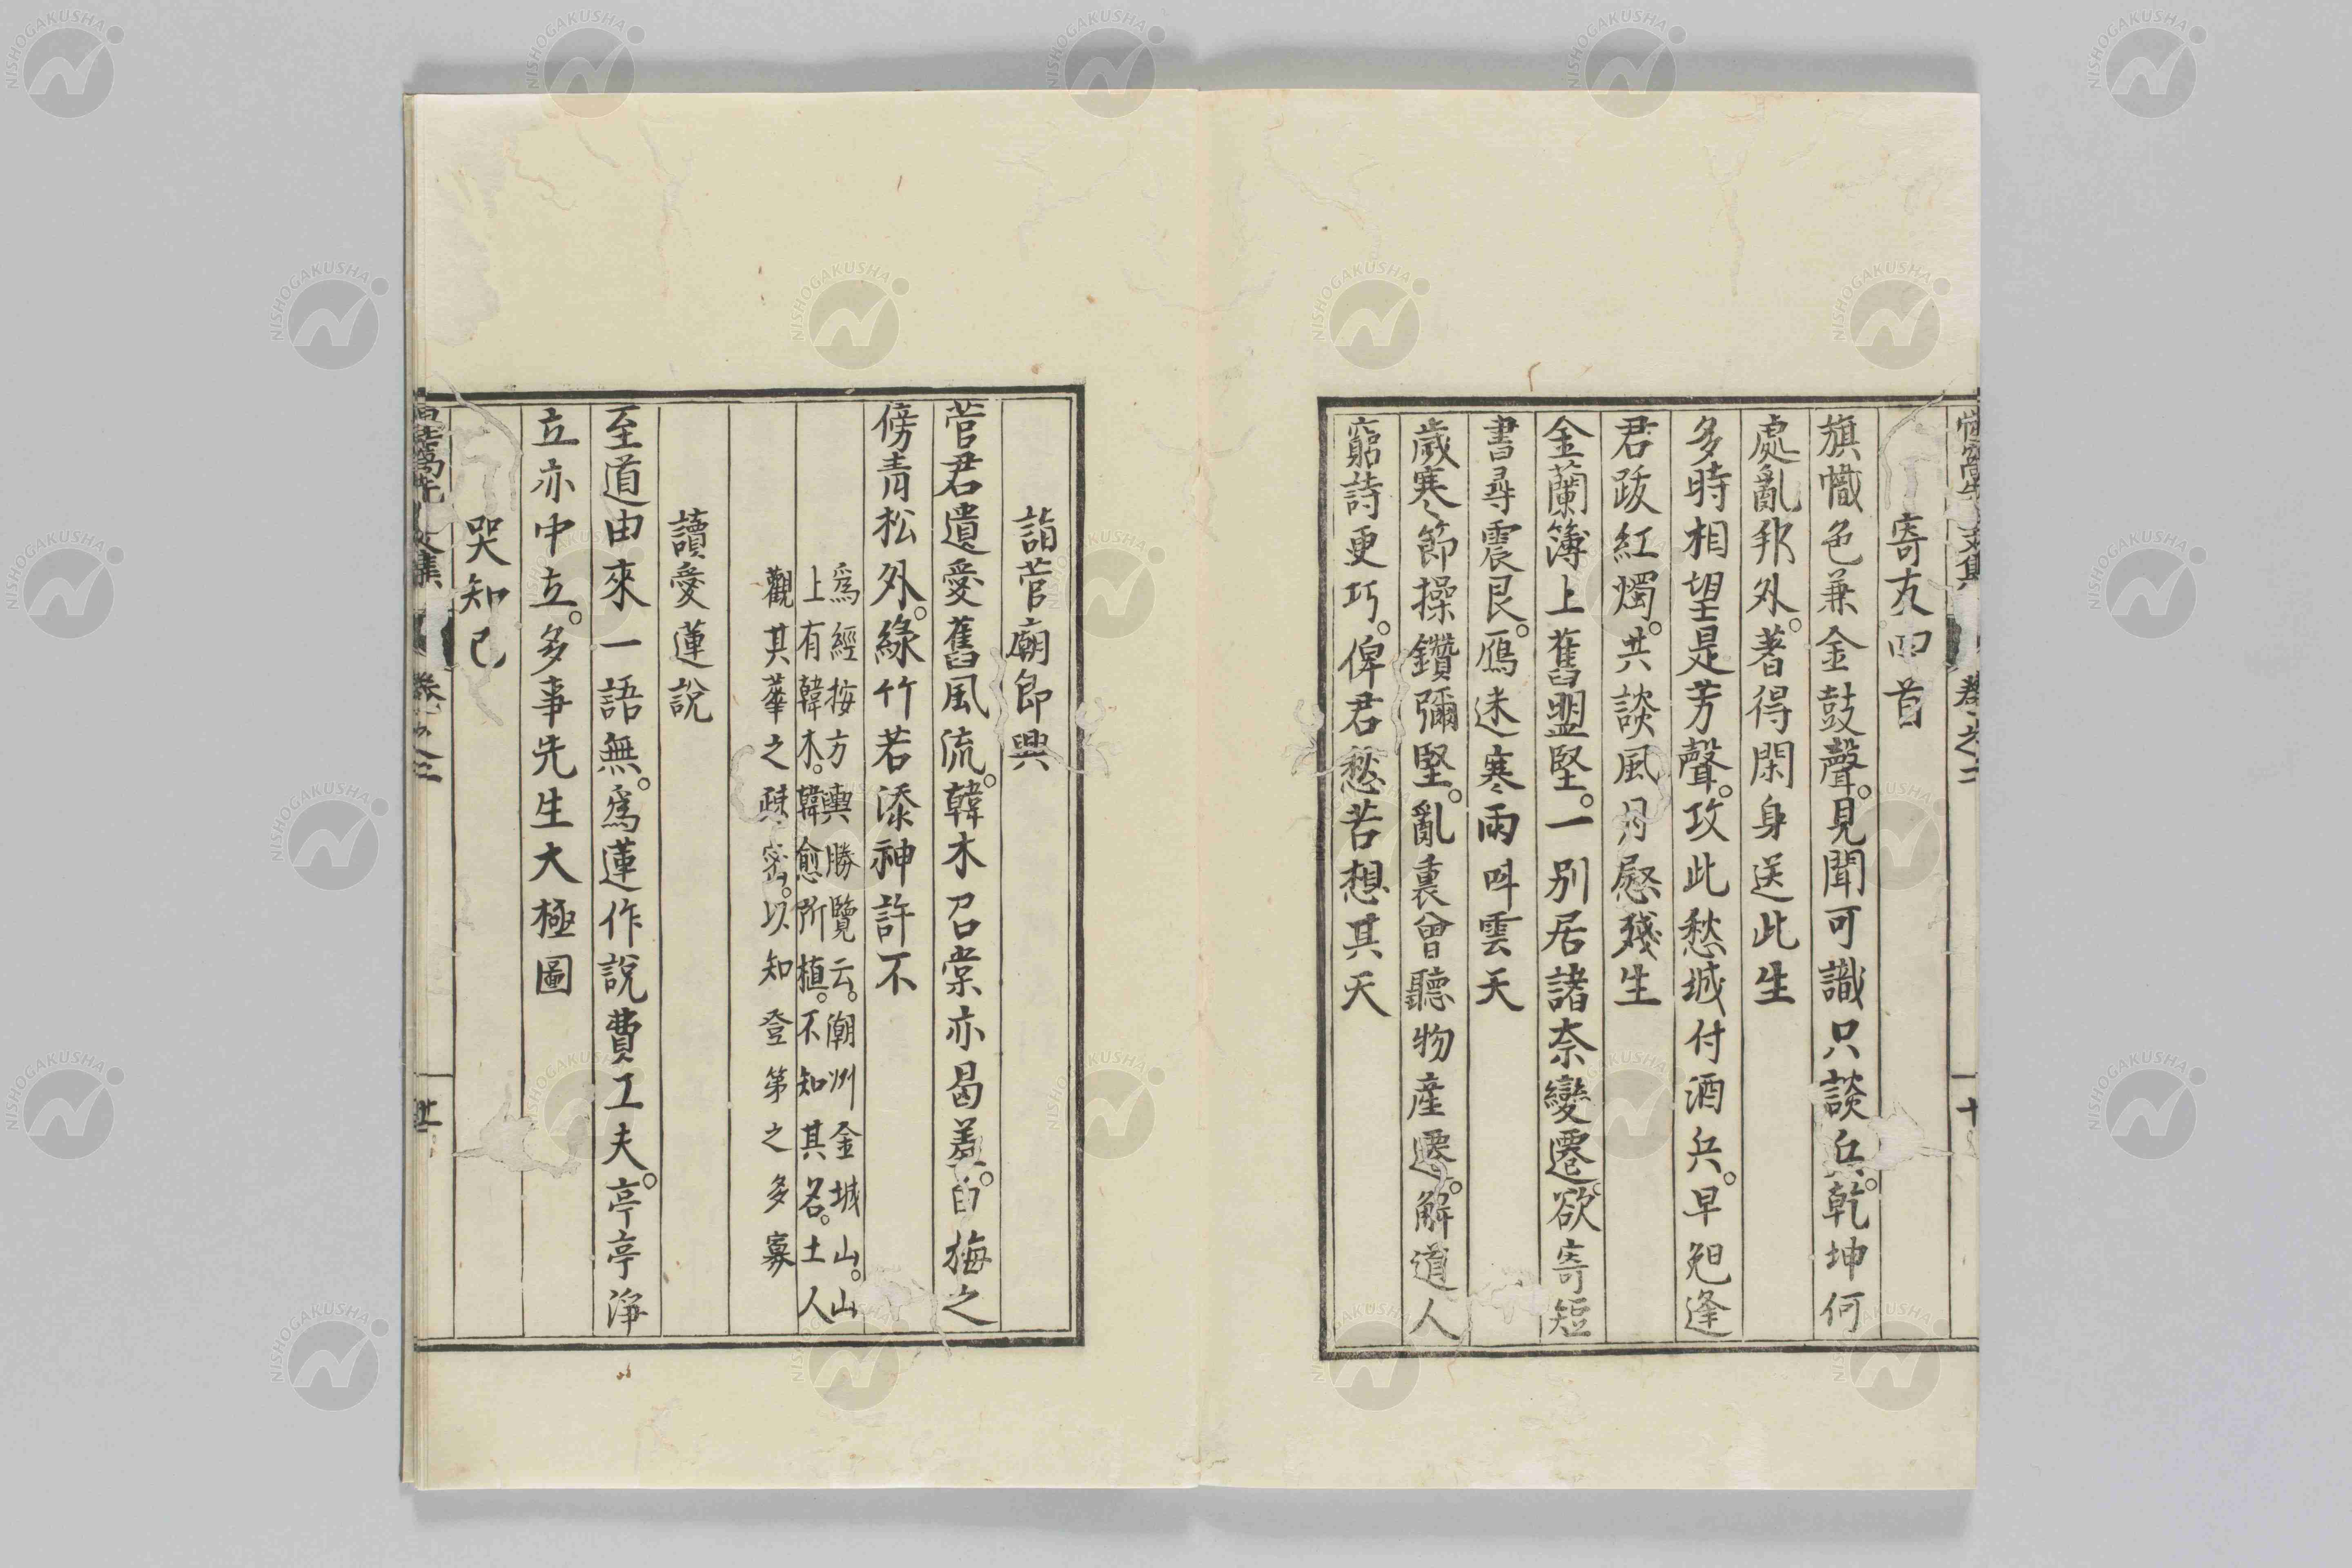 寄友四首
旗幟色兼金鼓聲。見聞可識只談兵。乾坤何
處亂邦外。著得閑身送此生
多時相望是芳聲。攻此愁城付酒兵。早晚逢
君跋紅燭。共談風月慰殘生
金蘭簿上舊盟堅。一別居諸奈變遷。欲寄短
書尋震艮。鴈迷寒雨叫雲天
歲寒節操鑽彌堅。亂裏曾聽物產遷。解道人
窮詩更巧。俾君愁苦想其天
詣菅廟即興
菅君遺愛舊風流。韓木召棠亦曷羞。白梅之
傍青松外。綠竹若添神許不
爲經按方輿勝覽云。潮州金城山。山
上有韓木。韓愈所植。不知其名。土人
觀其華之疎密。以知登第之多寡
讀愛蓮說
至道由來一語無。爲蓮作說費工夫。亭亭淨
立亦中立。多事先生大極圖
哭知己
卷之三
NISHOGAKUSHA